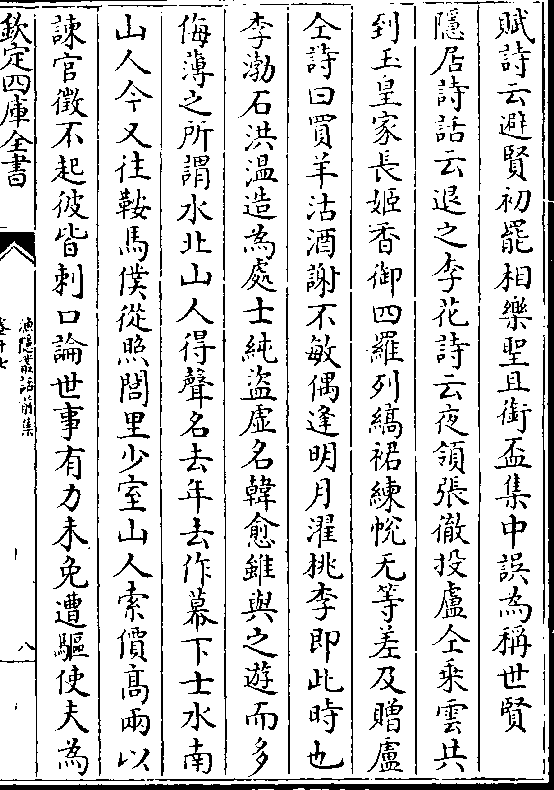 賦詩云避賢初罷相樂聖且銜盃集中誤為稱世賢
隱居詩話云退之李花詩云夜領張徹投盧仝乘雲共
到玉皇家長姬香御四羅列縞裙練帨无等差及贈盧
仝詩曰買羊沽酒謝不敏偶逢明月濯桃李即此時也
李渤石洪温造為處士純盜虚名韓愈雖與之遊而多
侮薄之所謂水北山人得聲名去年去作幕下士水南
山人今又往鞍馬僕從照閭里少室山人索價髙兩以
諫官徴不起彼皆刺口論世事有力未免遭驅使夫為
欽定四庫全書
漁隱叢話前集
卷十七
八